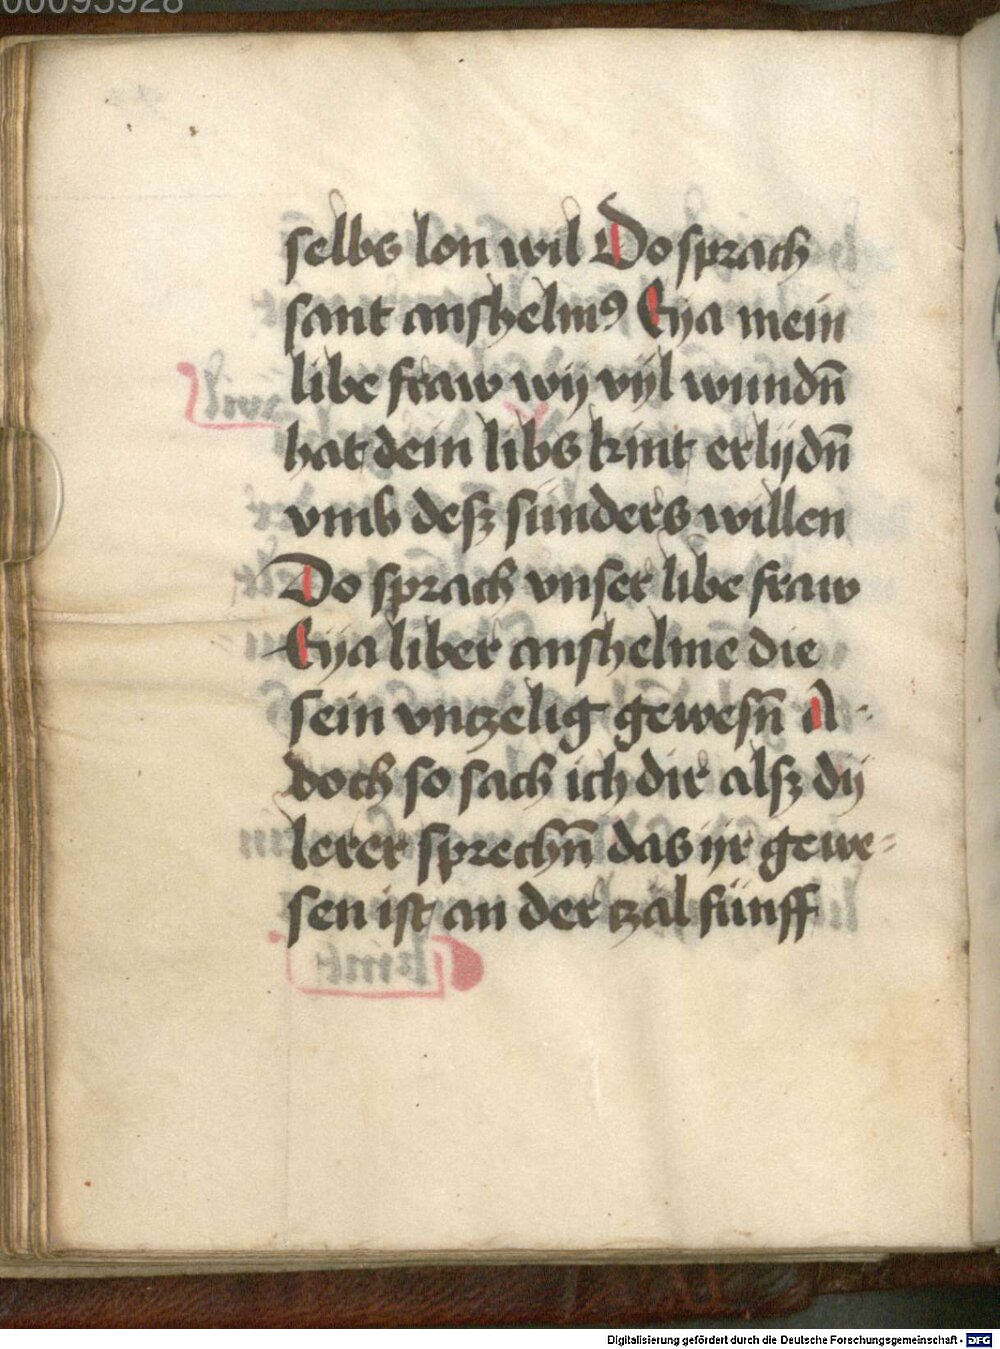 00095928
selbs lon wil Do sprach
sant anshelmꝰ Eya mein
libe fraw wij vyl wundn̄
hat dein libs kint erlijdn̄
vmb desz sünders willen
Do sprach vnser libe fraw
Eya liber anshelme die
sein vntzelig gewesn̄ A
doch so sach ich dir alsz dij
lerer sprechn̄ das yr gewe-
sen ist an der tzal fünff
Digitalisierung gefördert durch die Deutsche Forschungsgemeinschaft - DFG